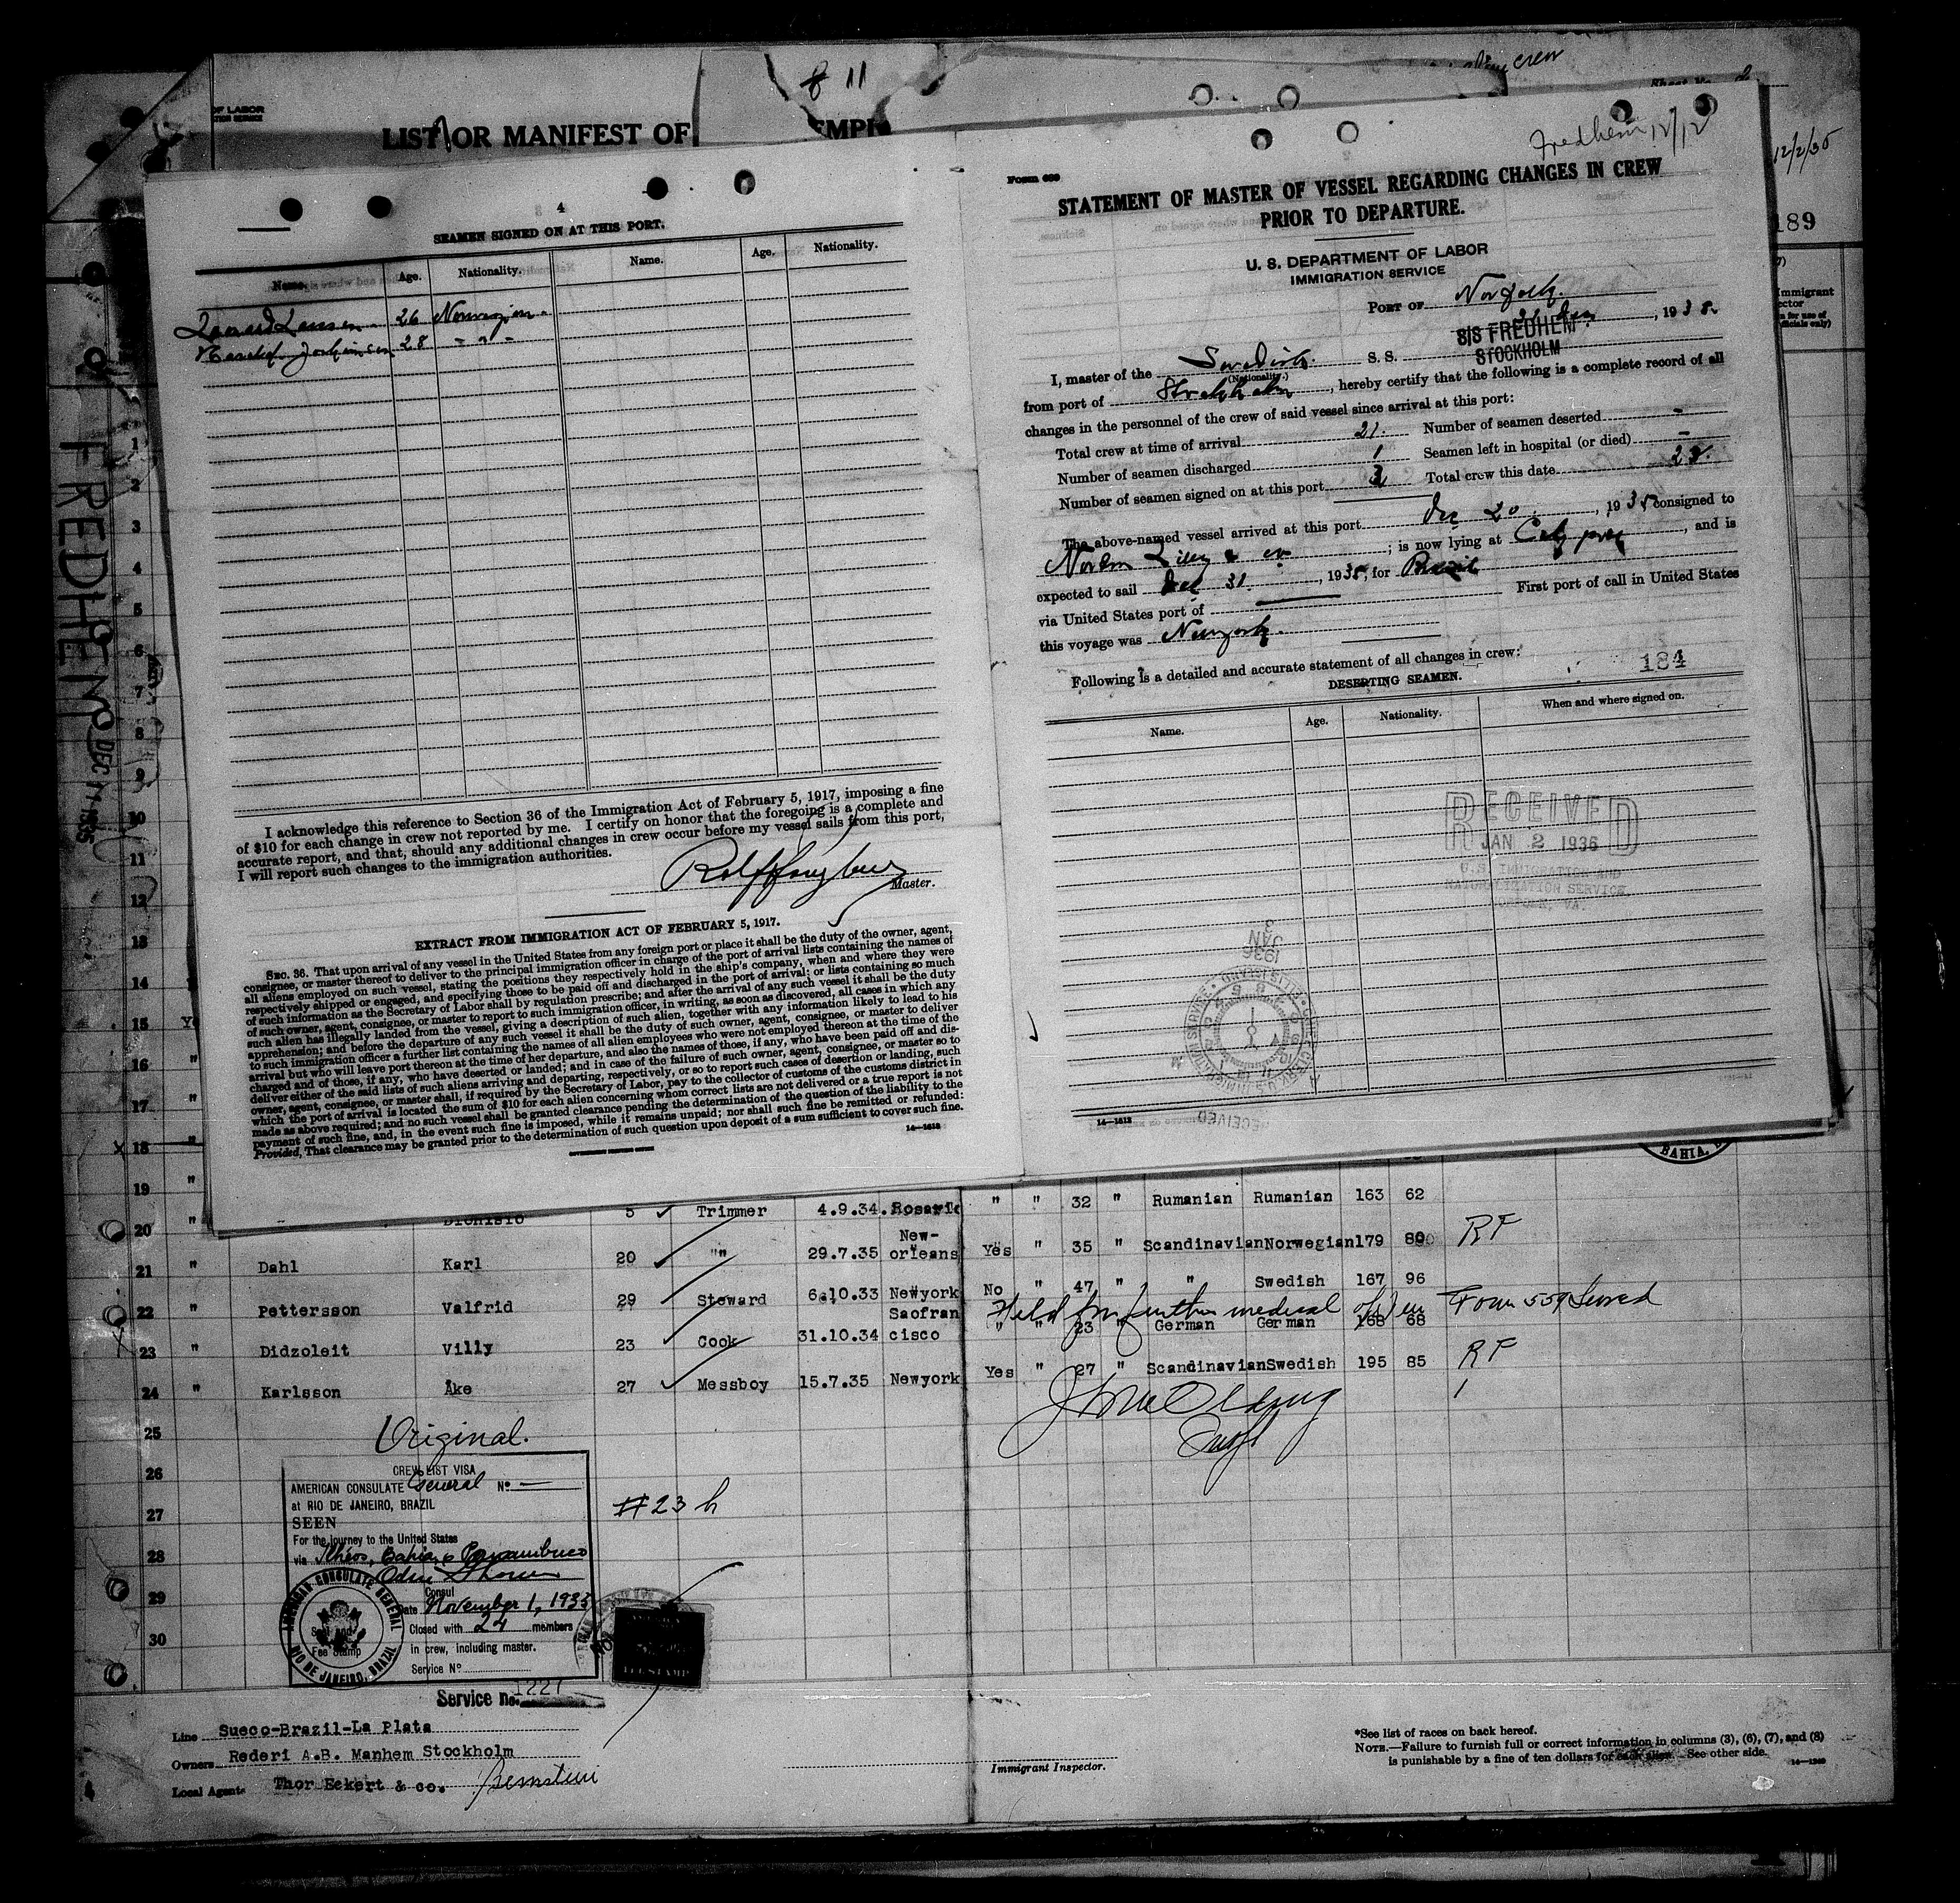 8 11
crew
OF LABOR
LIST OR MANIFEST OF
12/2/35
189
Immigrant
FREDHEM
DEC 11 1935
4
SEAMEN SIGNED ON AT THIS PORT.
Name. Age. Nationality. Name. Age. Nationality.
26 Norwegian
28 - " -
I acknowledge this reference to Section 36 of the Immigration Act of February 5, 1917, imposing a fine
of $10 for each change in crew not reported by me. I certify on honor that the foregoing is a complete and
accurate report, and that, should any additional changes in crew occur before my vessel sails from this port,
I will report such changes to the immigration authorities.
Master.
EXTRACT FROM IMMIGRATION ACT OF FEBRUARY 5, 1917.
SEC. 36. That upon arrival of any vessel in the United States from any foreign port or place it shall be the duty of the owner, agent,
consignee, or master thereof to deliver to the principal immigration officer in charge of the port of arrival lists containing the names of
all aliens employed on such vessel, stating the positions they respectively hold in the ship's company, when and where they were
respectively shipped or engaged, and specifying those to be paid off and discharged in the port of arrival; or lists containing so much
of such information as the Secretary of Labor shall by regulation prescribe; and after the arrival of any such vessel it shall be the duty
of such owner, agent, consignee, or master to report to such immigration officer, in writing, as soon as discovered, all cases in which any
such alien has illegally landed from the vessel, giving a description of such alien, together with any information likely to lead to his
apprehension; and before the departure of any such vessel it shall be the duty of such owner, agent, consignee, or master to deliver
to such immigration officer a further list containing the names of all alien employees who were not employed thereon at the time of the
arrival but who will leave port thereon at the time of her departure, and also the names of those, if any, who have been paid off and dis-
charged and of those, if any, who have deserted or landed; and in case of the failure of such owner, agent, consignee, or master so to
deliver either of the said lists of such aliens arriving and departing, respectively, or so to report such cases of desertion or landing, such
owner, agent, consignee, or master, shall, if required by the Secretary of Labor, pay to the collector of customs of the customs district in
which the port of arrival is located the sum of $10 for each alien concerning whom correct lists are not delivered or a true report is not
made as above required; and no such vessel shall be granted clearance pending the determination of the question of the liability to the
payment of such fine, and, in the event such fine is imposed, while it remains unpaid; nor shall such fine be remitted or refunded:
Provided, That clearance may be granted prior to the determination of such question upon deposit of a sum sufficient to cover such fine.
14—1613
Fredhem 12/12
Form 689
STATEMENT OF MASTER OF VESSEL REGARDING CHANGES IN CREW
PRIOR TO DEPARTURE.
U. S. DEPARTMENT OF LABOR
IMMIGRATION SERVICE
PORT OF Norfolk.
, 193
I, master of the Swedish S. S. S/S FREDHEM
(Nationality.) STOCKHOLM
from port of Stockholm, hereby certify that the following is a complete record of all
changes in the personnel of the crew of said vessel since arrival at this port:
Total crew at time of arrival 21. Number of seamen deserted -
Number of seamen discharged 1 Seamen left in hospital (or died) -
Number of seamen signed on at this port Total crew this date
The above-named vessel arrived at this port Dec 20, 1935 consigned to
; is now lying at , and is
expected to sail Dec 31, 1935, for Brazil
via United States port of First port of call in United States
this voyage was Newyork.
Following is a detailed and accurate statement of all changes in crew:
184
DESERTING SEAMEN.
Name. Age. Nationality. When and where signed on.
RECEIVED
JAN 2 1936
U.S. IMMIGRATION AND
NATURALIZATION SERVICE
NORFOLK, VA.
JAN 3 1936
RECEIVED
14—1613
BAHIA
1
2
3
4
5
6
7
8
9
10
11
12
13
14
15
16 "
17 "
18 "
19 "
20 " Dionisio 5 Trimmer 4.9.34. Rosario " " 32 " Rumanian Rumanian 163 62
21 " Dahl Karl 20 "" 29.7.35 New-orleans Yes " 35 " Scandinavian Norwegian 179 80 RF
22 " Pettersson Valfrid 29 Steward 6.10.33 Newyork No " 47 " " Swedish 167 96
Held for further medical Form 559 Served
23 " Didzoleit Villy 23 Cook 31.10.34 Saofrancisco " " 23 " German German 168 68
24 " Karlsson Åke 27 Messboy 15.7.35 Newyork Yes " 27 " Scandinavian Swedish 195 85 RF
25
26
27
28
29
30
Original.
CREW LIST VISA
AMERICAN CONSULATE General No —
at RIO DE JANEIRO, BRAZIL
SEEN
For the journey to the United States
via Ilheos, Bahia, & Pernambuco
Consul
Date November 1, 1935
Closed with 24 members
in crew, including master.
Service No
AMERICAN CONSULATE GENERAL
RIO DE JANEIRO, BRAZIL
Seal and
Fee Stamp
#23 h
Service no. 1227
Line Sueco-Brazil-La Plata
Owners Rederi A.B. Manhem Stockholm
Local Agents Thor Eckert & co. Bernstein
Immigrant Inspector.
*See list of races on back hereof.
NOTE.—Failure to furnish full or correct information in columns (3), (6), (7), and (8)
is punishable by a fine of ten dollars for each alien. See other side.
14—1240